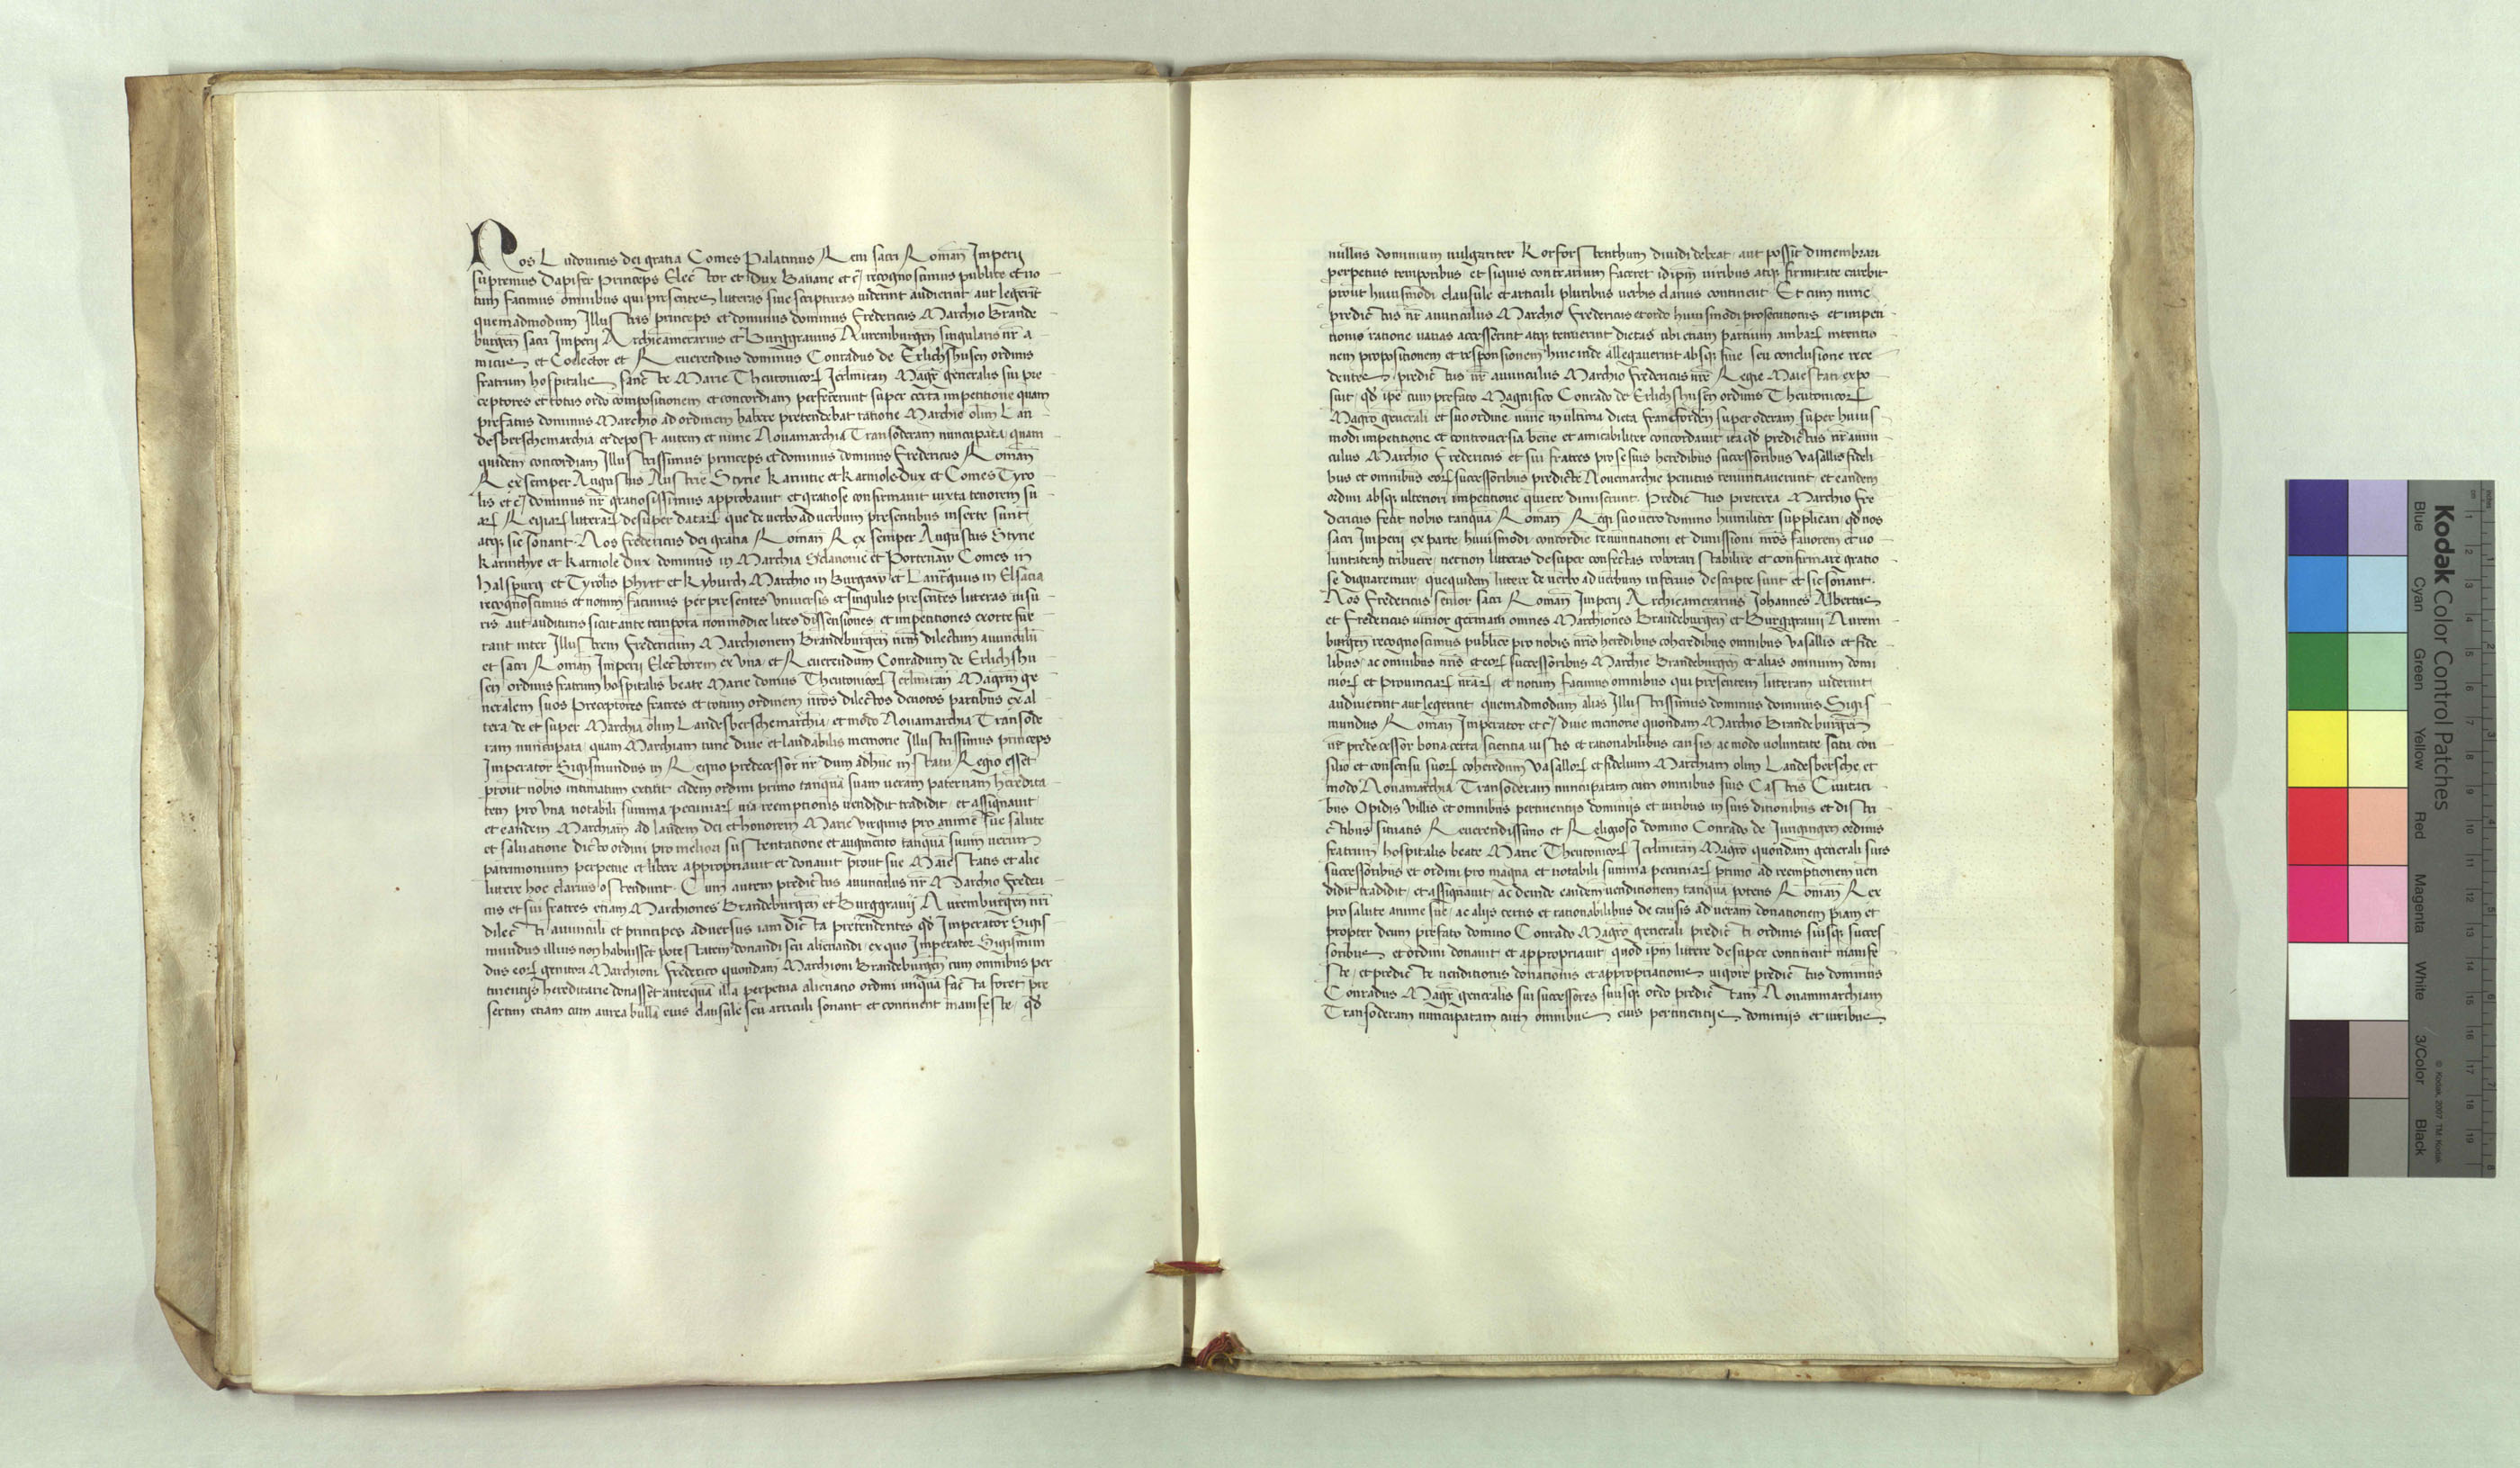 Nos Ludovicus dei gratia Comes Palatinus Reni sacri Roman Imperij
supremus Dapifer Princeps Elector et dux Bavarie etc recognoscimus publice et no
tum facimus omnibus qui presentes luteras sive scripturas viderint audierint aut legerit
quemadmodum Illustris princeps et dominus dominus Fredericus Marchio Brande
burgen sacri Imperij Archicamerarius et Burggravius Nuremburgen singularis nr a
micus et Coelector et Reverendus dominus Conradus de Erlichshusen ordinis
fratrum hospitalis sancte Marie Theutonicor Jerlmitan Magr generalis sui pre
ceptores et totus ordo compositionem et concordiam perfecerunt super certa impetitione quam
prefatus dominus Marchio ad ordinem habere pretendebat ratione Marchie olim Lan
desberschemarchia et depost autem et nunc Novamarchia Transoderam nuncupata quam
quidem concordiam Illustrissimus princeps et dominus dominus Fredericus Roman
Rex semper Augustus Austrie Styrie Karintie et Karniole Dux et Comes Tyro
lis etc dominus nr gratiosissimus approbavit et gratiose confirmavit iuxta tenorem su
ar Regiar litterar desuper datar que de verbo ad verbum presentibus inserte sunt
atq sic sonant Nos Fredericus dei gratia Roman Rex semper Augustus Styrie
Karinthye et Karniole Dux dominus in Marchia Sclavonie et Portenaw Comes in
Halspurg et Tyrolis Phyrt et Kyburch Marchio in Burgaw et Lantgvius in Elsacia
recognoscimus et notum facimus per presentes Universis et singulis presentes luteras visu
ris aut audituris sicut ante tempora non modice lites dissensiones et impetitiones exorte fue
rant inter Illustrem Fredericum Marchionem Brandeburgen nrm dilectum avunculu
et sacri Roman Imperii Electorem ex Una et Reverendum Conradum de Erlichshu
sen ordinis fratrum hospitalis beate Marie domus Theutonicor Jerlmitan Magrm ge
neralem suos Preceptores fratres et totum ordinem nros dilectos devotos partibus ex al
tera de et super Marchia olim Landesberschemarchia et modo Novamarchia Transode
ram nuncupata quam Marchiam tunc dive et laudabilis memorie Illustrissimus princeps
Imperator Sigismundus in Regno predecessor nr dum adhuc in statu Regio esset
prout nobis intimatum extitit eidem ordini primo tanqua suam veram paternam heredita
tem pro Una notabili summa pecuniar via reemptionis vendidit tradidit et assignavit
et eandem Marchiam ad laudem dei et honorem Marie virginis pro anime sue salute
et salvatione dicto ordini pro meliori sustentatione et augmento tanqua suum verum
patrimonium perpetue et libere appropriavit et donavit prout sue Maiestatis et alie
lutere hoc clarius ostendunt Cum autem predictus avunculus nr Marchio Frederi
cus et sui fratres etiam Marchiones Brandeburgen et Burggravij Nuremburgen nri
dilecti avunculi et principes adversus iam dicta pretendentes qd Imperator Sigis
mundus illius non habuisset potestatem donandi seu alienandi ex quo Imperator Sigismun
dus eor genitori Marchioni Frederico quondam Marchioni Brandeburgen cum omnibus per
tinentijs hereditarie donasset antequa illa perpetua alienatio ordini unqua facta foret pre
sertim etiam cum aurea bulla eius clausule seu articuli sonant et continent manifeste qd
nullus dominium vulgariter Korforstenthum dividi debeat aut possit dimembrari
perpetuis temporibus et siquis contrarium faceret id ipm viribus atq firmitate carebit
prout huiusmodi clausule et articuli pluribus verbis clarius continent Et cum nunc
predictus nr avunculus Marchio Fredericus et ordo huiusmodi prosecutionis et impeti
tionis ratione varias accesserint atq tenuerint dietas ubi etiam partium ambar intentio
nem propositionem et responsionem hincinde allegaverint absq fine seu conclusione rece
dentes predictus nr avunculus Marchio Fredericus nre Regie Maiestati expo
suit qd ipe cum prefato Magnifico Conrado de Erlichshusen ordinis Theutonicor
Magro generali et suo ordine nunc in ultima dieta Franckforden super oderam super huius
modi impetitione et controversia bene et amicabiliter concordavit ita qd predictus nr avun
culus Marchio Fredericus et sui fratres pro se suis heredibus successoribus Vasallis fideli
bus et omnibus eor successoribus predicte Novemarchie penitus renuntiaverunt et eandem
ordini absq ulteriori impetitione quiete dimiserunt Predictus preterea Marchio Fre
dericus fecit nobis tanqua Roman Regi suo vero domino humiliter supplicari qd nos
sacri Imperij ex parte huiusmodi concordie renuntiationi et dimissioni nros favorem et vo
luntatem tribuere necnon luteras desuper confectas roborari stabilire et confirmare gratio
se dignaremur quequidem lutere de verbo ad verbum inferius descripte sunt et sic sonant
Nos Fredericus senior sacri Roman Imperij Archicamerarius Johannes Albertus
et Fredericus iunior germani omnes Marchiones Brandeburgen et Burggravij Nurem
burgen recognoscimus publice pro nobis nris heredibus coheredibus omnibus Vasallis et fide
libus ac omnibus nris et eor successoribus Marchie Brandeburgen et alias omnium domi
nior et Provinciar nrar et notum facimus omnibus qui presentem luteram viderint
audiverint aut legerint quemadmodum alias Illustrissimus dominus dominus Sigis
mundus Roman Imperator etc dive memorie quondam Marchio Brandeburgen
nr predecessor bona certa scientia iustis et rationabilibus causis ac modo voluntate scitu con
silio et consensu suor coheredum Vasallor et fidelium Marchiam olim Landesbersche et
modo Novamarchia Transoderam nuncupatam cum omnibus suis Castris Civitati
bus Opidis Villis et omnibus pertinentijs dominijs et iuribus in suis ditionibus et distri
ctibus situatis Reverendissimo et Religioso domino Conrado de Jungingen ordinis
fratrum hospitalis beate Marie Theutonicor Jerlmitan Magro quondam generali suis
successoribus et ordini pro magna et notabili summa pecuniar primo ad reemptionem ven
didit tradidit et assignavit ac deinde eandem venditionem tanqua potens Roman Rex
pro salute anime sue ac alijs certis et rationabilibus de causis ad veram donationem piam et
propter deum prefato domino Conrado Magro generali predicti ordinis suisq succes
soribus et ordini donavit et appropriavit quod ipm lutere desuper continent manife
ste et predicte venditionis donationis et appropriationis vigore predictus dominus
Conradus Magr generalis sui successores suusq ordo predictam Novammarchiam
Transoderam nuncupatam cum omnibus eius pertinentijs dominijs et iuribus
Kodak Color Control Patches
Blue Cyan Green Yellow Red Magenta White 3/Color Black
© Kodak, 2007 TM: Kodak